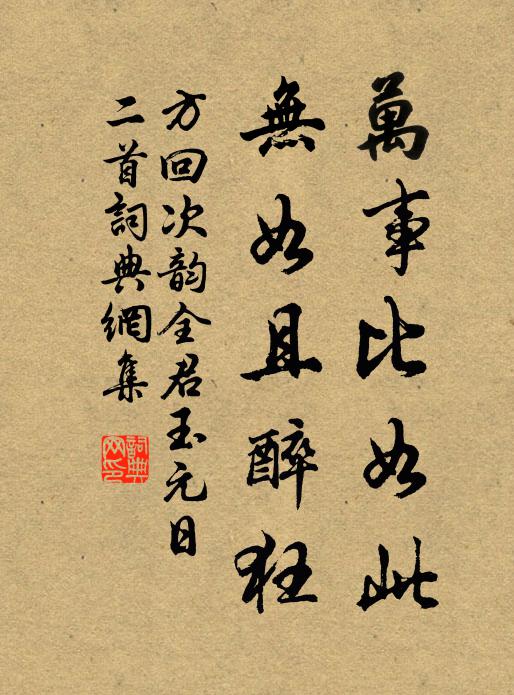 萬事比如此
無如且醉狂
方回次韵全君玉元日
二首詞典網集
詞典
网印